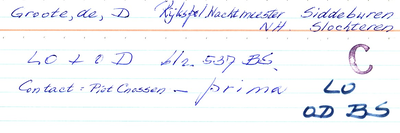 Groote, de, D Rijkspol. Wachtmeester Siddeburen
N.H. Slochteren
LO + OD blz. 537 BS. C
Contact: Piet Crossen — prima LO
OD BS